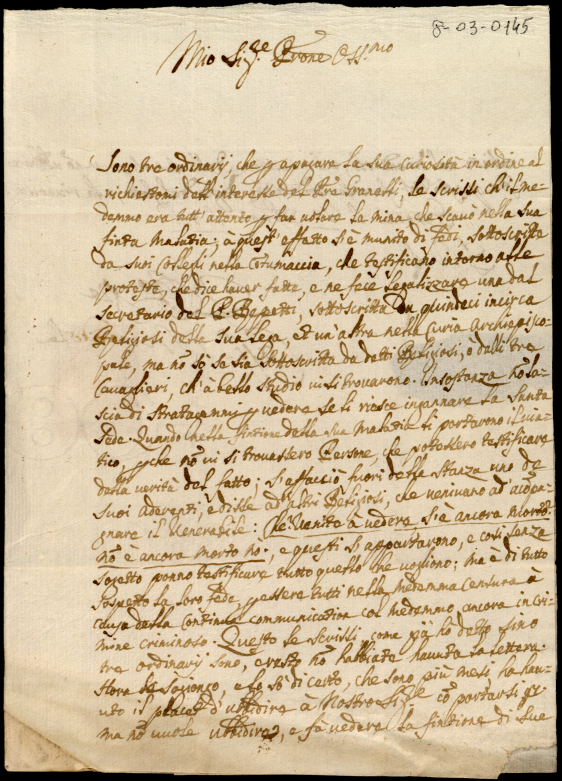 8-03-0145
Mio Sig.re Prone Oss.mo
Sono tre ordinarij che p apacare la sua curiosità in ordine al
richiestomi dell'interesse del Pre Granelli, le scrissi ch'il me-
demmo era tutt'attento p far volare la mina, che scavò nella sua
finta malatia; à quest'effetto si è munito di fedi, sottoscritte
da suoi Colleghi nella Contumaccia, che testificano intorno alle
proteste, che dice haver fatte, e ne fece legalizzare una dal
Secretario del P. sottoscritta da quindeci incirca
Religiosi della sua lega, et un'altra nella Curia Archiepisco-
pale, ma nõ sò se sia sottoscritta da detti Religiosi, ò dalli tre
Cavaglieri, ch'à bello studio vi si trovarono. Insostanza nõ la-
scia di stratagemmi p vedere se li riesce ingannare la Santa
Sede. Quando nella fintione della sua malatia li portarono il via-
tico, pche nõ vi si trovassero Persone, che potessero testificare
della verità del fatto; si affacciò fuori della stanza uno de
suoi aderenti, e disse ad altri Religiosi, che venivano ad acõpa-
gnare il Venerabile: Ne venite à vedere si è ancora morto?
nõ è ancora morto nò, e questi si appartarono, e così senza
sogetto ponno testificare tutto quello che vogliono; mà è di tutto
sospetto la loro fede p essere tutti nella medemma censura à
causa della continua communicatione col medemmo ancora in cri-
mine criminoso. Questo le scrissi, come già hò detto sino
tre ordinarij sono, e resto nõ habbiate havuta la lettera.
Hora le sogiongo, e lo sò di certo, che sono più mesi, ha hau-
uto il placet d'ubbidire à Nostro Sig.re cõ portarsi
ma nõ vuole ubbidire, e fà vedere la fintione di sue